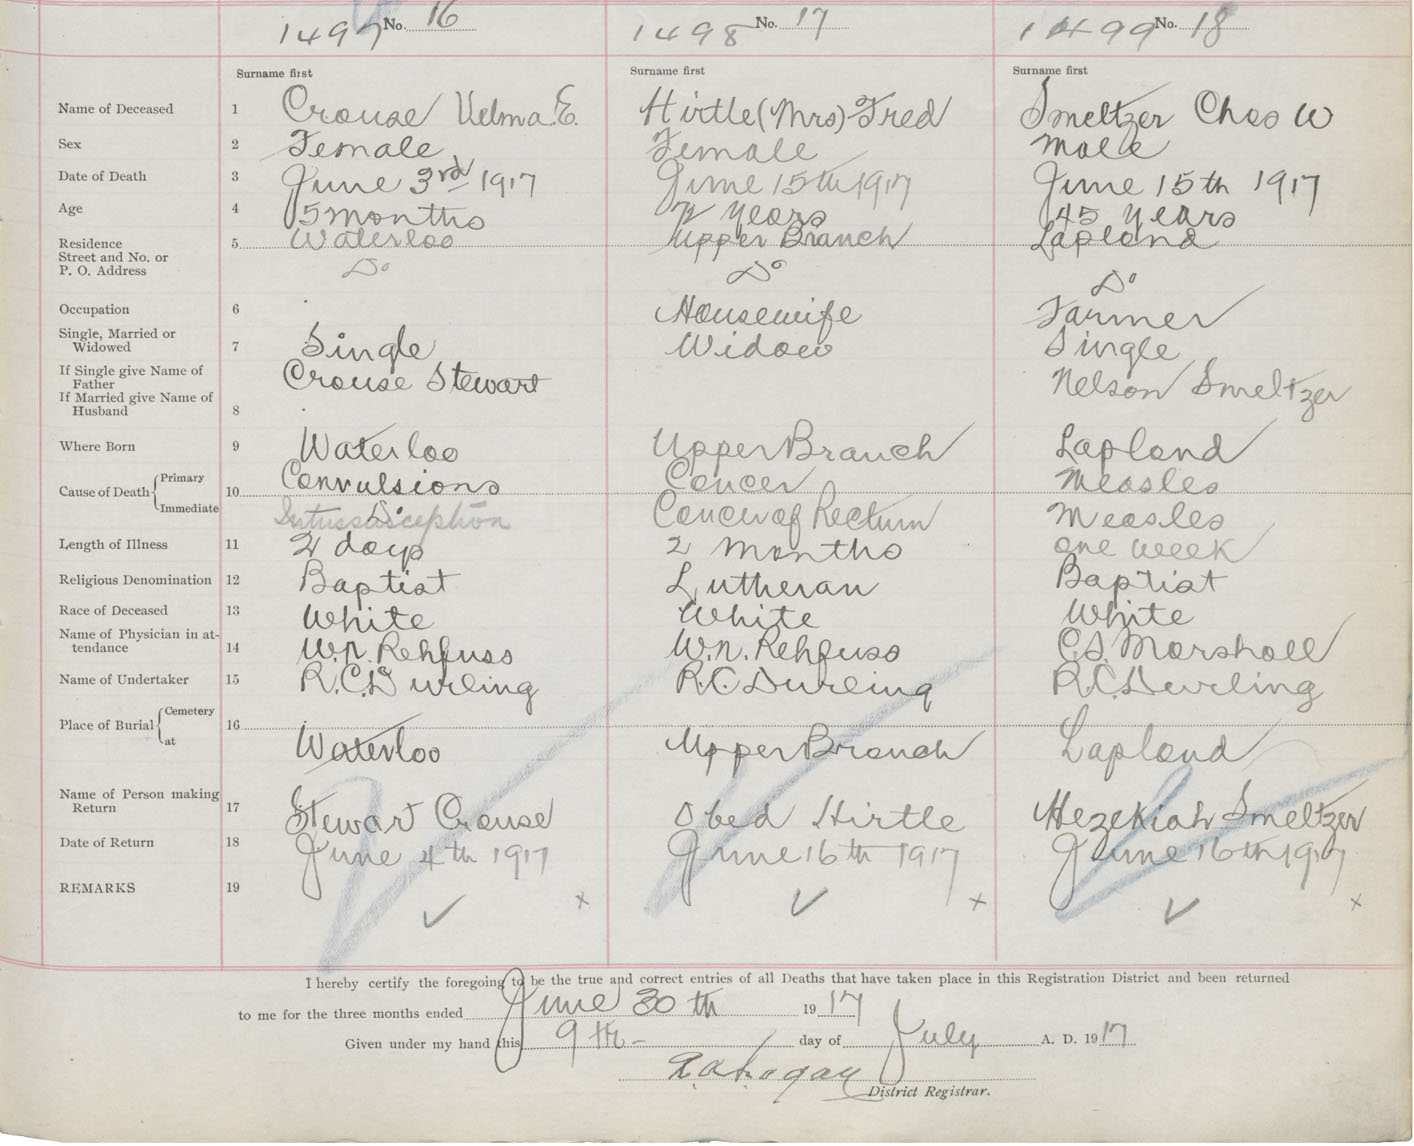 1497 No. 16 1498 No. 17 1499 No. 18
Surname first Surname first Surname first
Name of Deceased 1 Crouse Velma E. Hirtle (Mrs) Fred Smeltzer Chas W
Sex 2 Female Female Male
Date of Death 3 June 3rd 1917 June 15th 1917 June 15th 1917
Age 4 5 months Years 45 Years
Residence 5 Waterloo Upper Branch Lapland
Street and No. or
P. O. Address Do Do Do
Occupation 6 Housewife Farmer
Single, Married or
Widowed 7 Single Widow Single
If Single give Name of
Father Crouse Stewart Nelson Smeltzer
If Married give Name of
Husband 8
Where Born 9 Waterloo Upper Branch Lapland
Cause of Death Primary 10 Convulsions Cancer Measles
Immediate Do Intussusception Cancer of Rectum Measles
Length of Illness 11 2 days 2 months one week
Religious Denomination 12 Baptist Lutheran Baptist
Race of Deceased 13 White White White
Name of Physician in at-
tendance 14 W.N. Rehfuss W.N. Rehfuss C.S. Marshall
Name of Undertaker 15 R.C. Durling R.C. Durling R.C. Durling
Place of Burial Cemetery 16
at Waterloo Upper Branch Lapland
Name of Person making
Return 17 Stewart Crouse Obed Hirtle Hezekiah Smeltzer
Date of Return 18 June 4th 1917 June 16th 1917 June 16th 1917
REMARKS 19
I hereby certify the foregoing to be the true and correct entries of all Deaths that have taken place in this Registration District and been returned
to me for the three months ended June 30th 1917
Given under my hand this 9th day of July A. D. 1917
District Registrar.